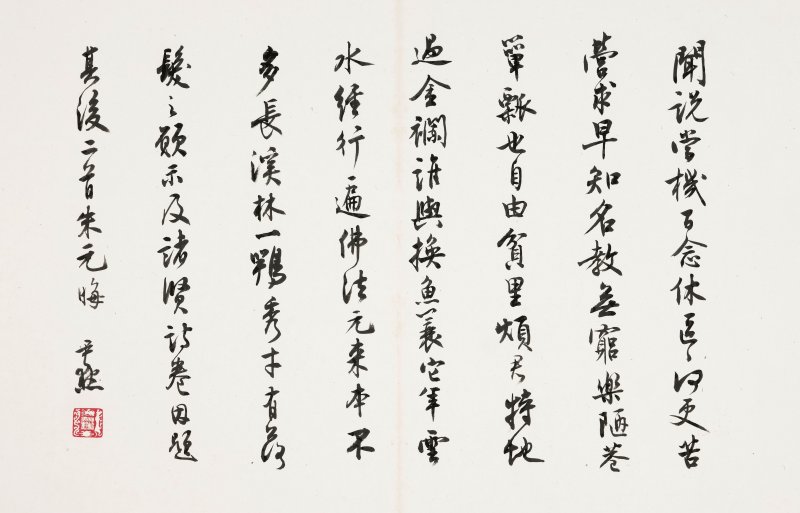 聞說當機百念休區區何更苦
營求早知名教無窮樂陋巷
簞瓢也自由貧里煩君特地
過金襴誰與換魚蓑它年雲
水經行遍佛法元來本不
多長溪林一鶚秀才有落
髮之願示及諸賢詩卷因題
其後二首朱元晦 尹默